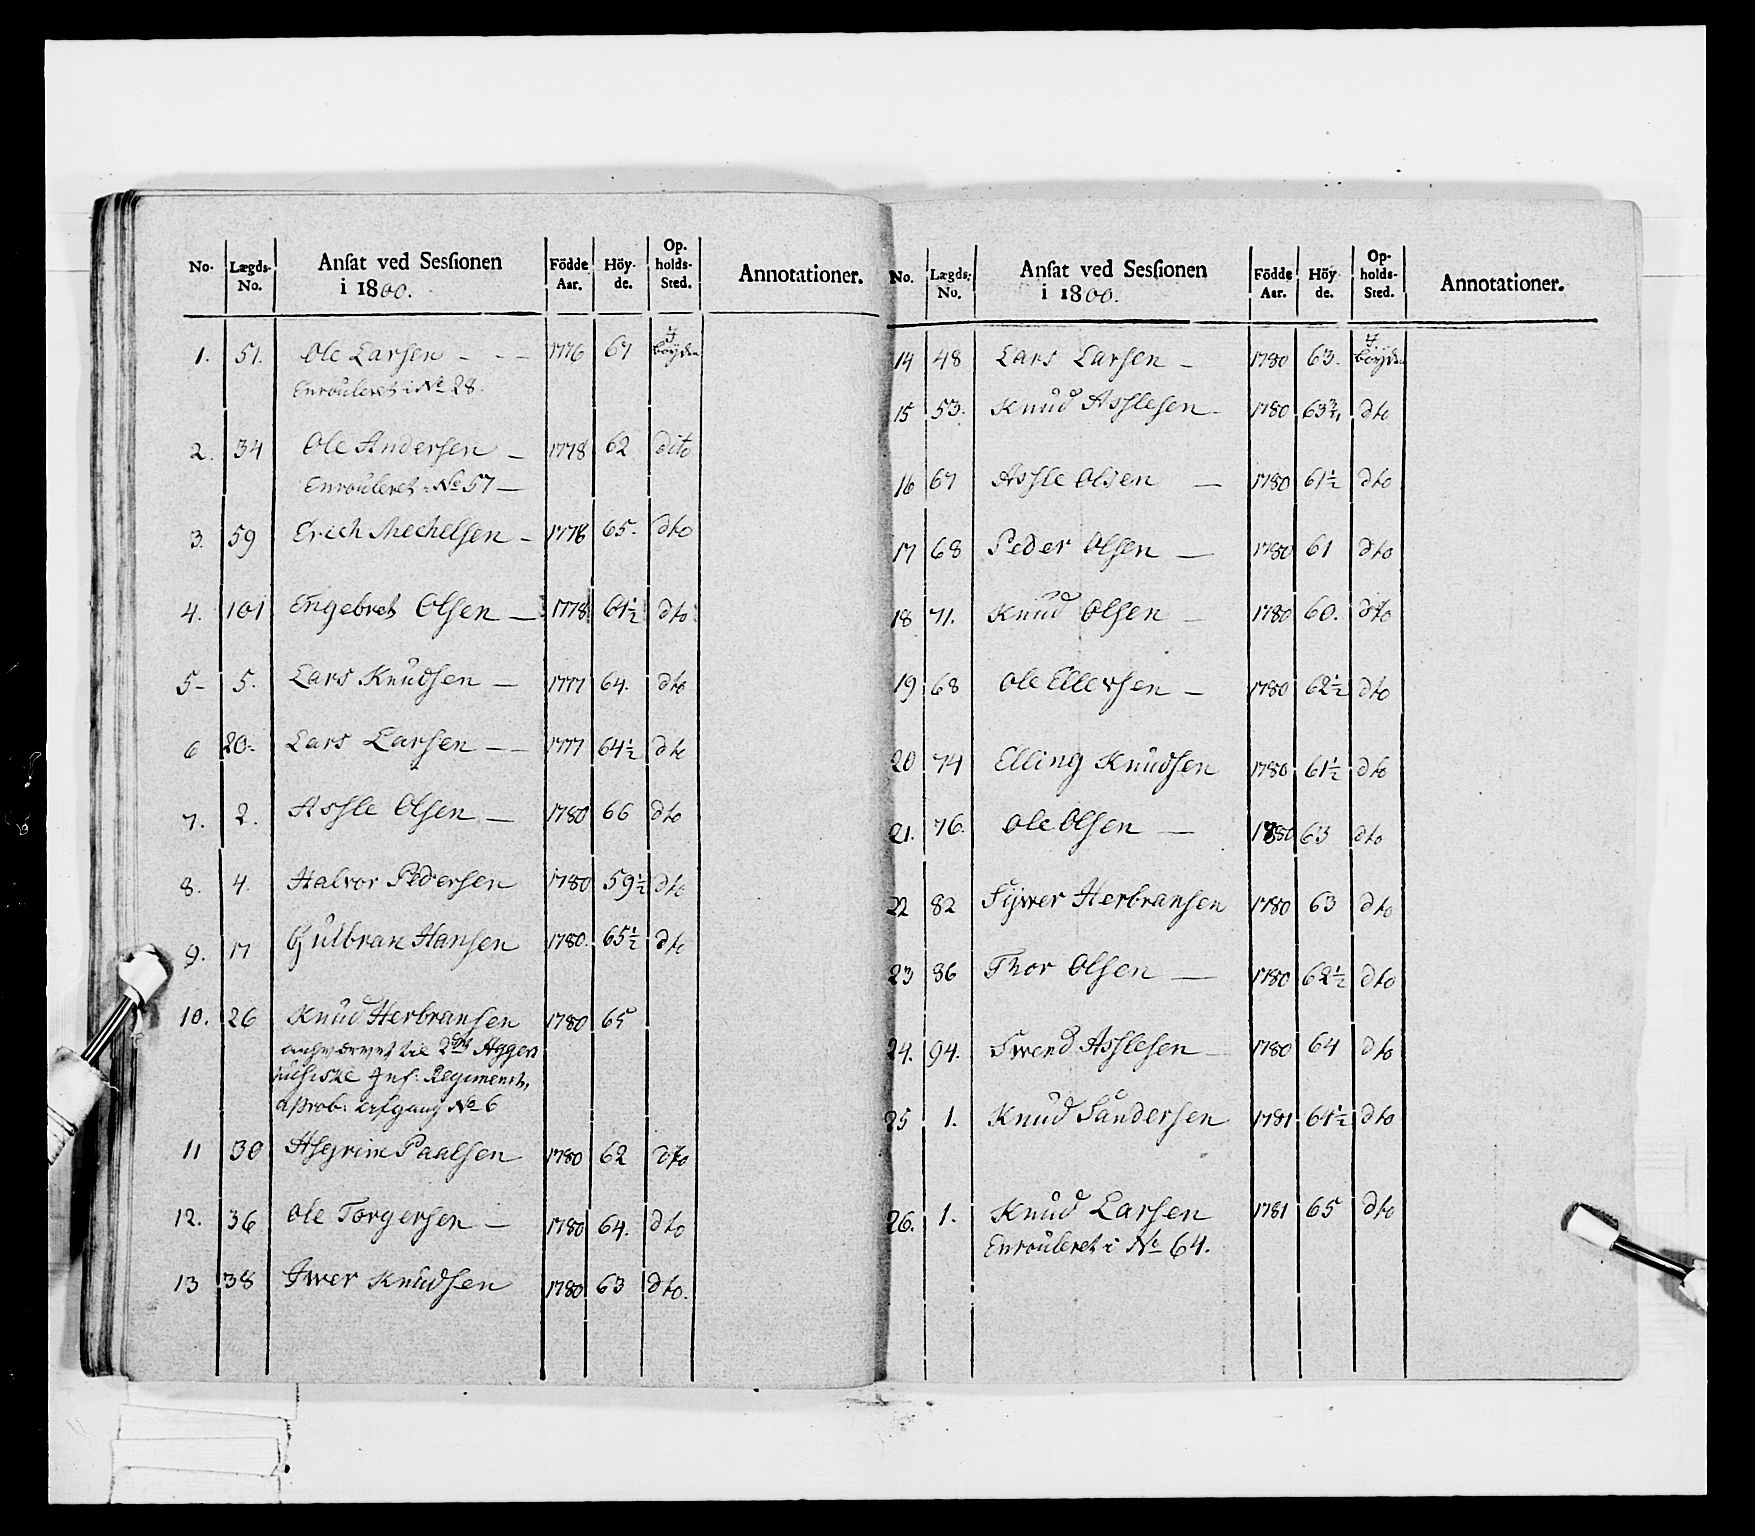 No. Lægds-No. Ansat ved Sessionen i 1800. Födde Aar. Höy-de. Op-holds-Sted. Annotationer.
1. 51. Ole Larsen - - - 1776 67 I bøyden
Enrouleret i No 28.
2. 34 Ole Andersen - 1778 62 dito
Enrouleret i No 57 -
3. 59 Erich Mechelsen - 1778 65. dto
4. 101 Engebret Olsen - 1778 61½ dto
5- 5. Lars Knudsen - 1777 64. dto
6 20- Lars Larsen - - 1777 64½ dto
7. 2. Aslle Olsen - 1780 66 dto
8. 4. Halvor Pedersen 1780 59½ dto
9. 17 Gulbran Hansen 1780. 65½ dto
10. 26 Knud Herbransen 1780 65
til 2det Aggers
husiske Inf: Regiment,
aprob: Afgang No 6
11 30 Asgrim Paalsen 1780 62 dto
12. 36 Ole Torgersen - 1780 64. dto
13 38 Iwer Knudsen 1780 63 dto.
No. Lægds-No. Ansat ved Sessionen i 1800. Födde Aar. Höy-de. Op-holds-Sted. Annotationer.
14 48 Lars Larsen - 1780 63. I bøyden
15 53. Knud Asslesen - 1780 63¾ dto
16 67 Assle Olsen - 1780 61½ dto
17 68 Peder Olsen - 1780 61 dto
18 71. Knud Olsen - 1780 60. dto
19 68 Ole Ellevsen - 1780 62½ dto
20 74 Elling Knudsen 1780 61½ dto
21. 76. Ole Olsen - 1780 63 dto
22 82 Sywer Herbransen 1780 63 dto
23 86 Thor Olsen - 1780 62½ dto
24. 94. Swend Asslesen - 1780 64 dto
25 1. Knud Sandersen 1781 61½ dto
26. 1. Knud Larsen 1781 65 dto
Enrouleret i No 64.